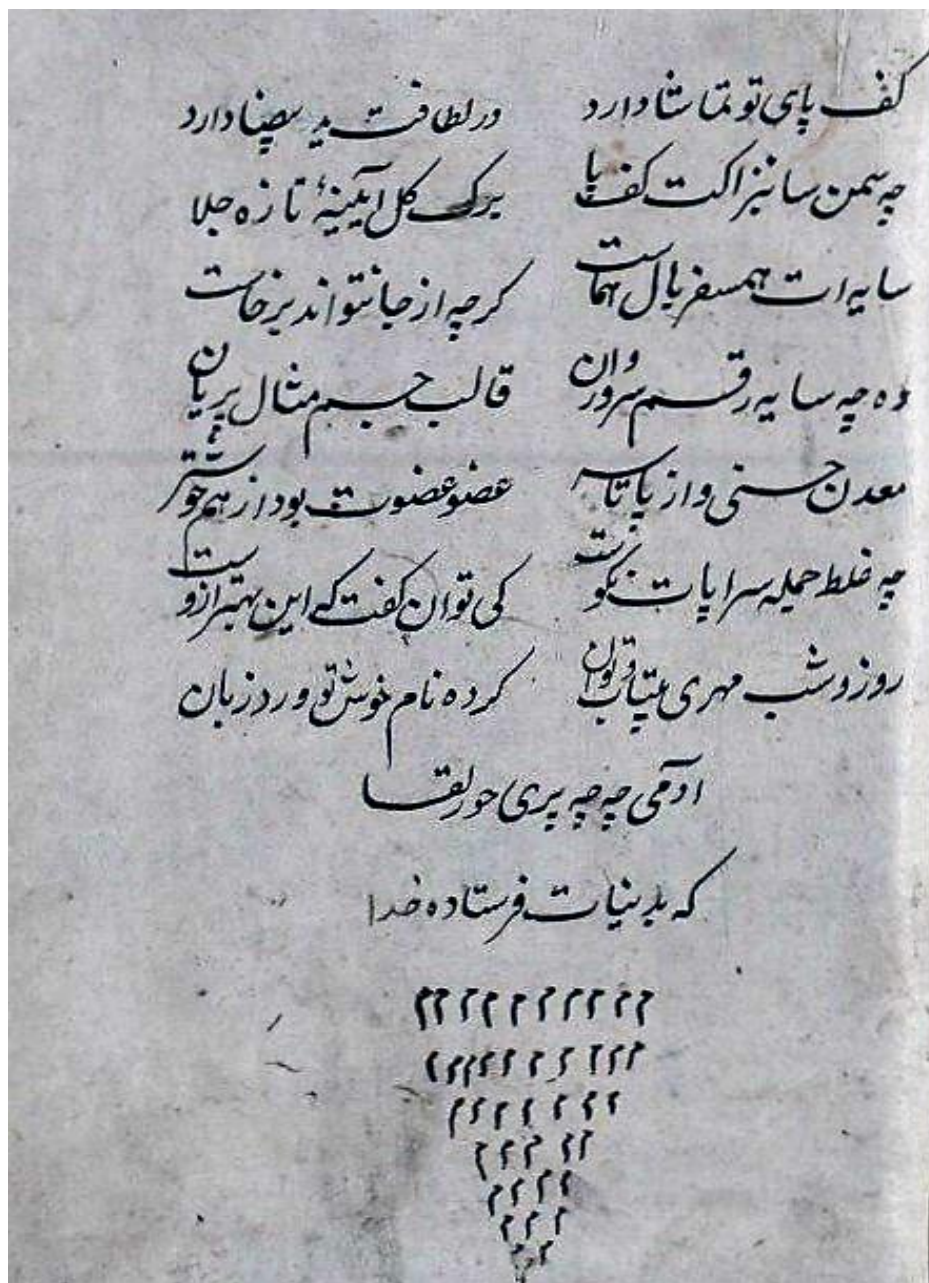 کف پای تو تماشا دارد در لطافت ید بیضا دارد
چه سمن سا بنزاکت کف پا برک کل آیینهٔ تازه جلا
سایه ات همسفر بال هماست کرچه از جا نتواند برخاست
وه چه سایه رقم سروروان قالب جسم مثال پریان
معدن حسنی و از پا تا سر عضو عضوت بود از هم خوشتر
چه غلط جمله سراپات نکوست کی توان کفت که این بهتر ازوست
روز و شب مهری بیتاب و توان کرده نام خوش تو ورد زبان
ادمی چه چه پری حور لقا
که بدنیات فرستاده خدا
م م م م م م م م م م
م م م م م م م م م
م م م م م م م
م م م م م
م م م م
م م م
م م